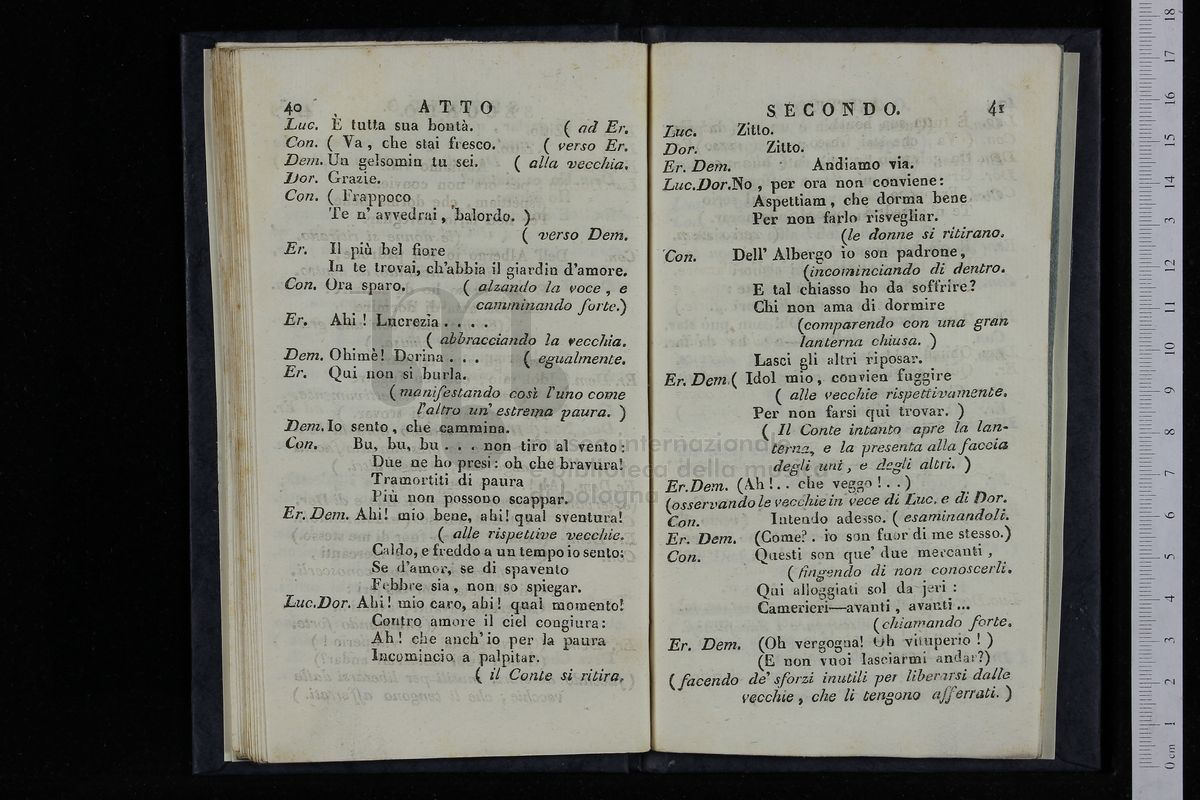 40 ATTO
Luc. È tutta sua bontà. ( ad Er.
Con. ( Va , che stai fresco. ( verso Er.
Dem. Un gelsomin tu sei. ( alla vecchia.
Dor. Grazie.
Con. ( Frappoco
Te n' avvedrai, balordo. )
( verso Dem.
Er. Il più bel fiore
In te trovai, ch'abbia il giardin d'amore.
Con. Ora sparo. ( alzando la voce , e
camminando forte.)
Er. Ahi ! Lucrezia . . . .
( abbracciando la vecchia.
Dem. Ohimè! Dorina . . . ( egualmente.
Er. Qui non si burla.
( manifestando così l'uno come
l'altro un' estrema paura. )
Dem. Io sento , che cammina.
Con. Bu, bu, bu . . . non tiro al vento:
Due ne ho presi: oh che bravura!
Tramortiti di paura
Più non possono scappar.
Er. Dem. Ahi! mio bene, ahi! qual sventura!
( alle rispettive vecchie.
Caldo, e freddo a un tempo io sento:
Se d'amor, se di spavento
Febbre sia , non so spiegar.
Luc.Dor. Ahi! mio caro, ahi! qual momento!
Contro amore il ciel congiura:
Ah! che anch'io per la paura
Incomincio a palpitar.
( il Conte si ritira.
SECONDO. 41
Luc. Zitto.
Dor. Zitto.
Er. Dem. Andiamo via.
Luc.Dor. No , per ora non conviene:
Aspettiam , che dorma bene
Per non farlo risvegliar.
(le donne si ritirano.
Con. Dell' Albergo io son padrone,
(incominciando di dentro.
E tal chiasso ho da soffrire?
Chi non ama di dormire
(comparendo con una gran
lanterna chiusa. )
Lasci gli altri riposar.
Er. Dem. ( Idol mio, convien fuggire
( alle vecchie rispettivamente.
Per non farsi qui trovar. )
( Il Conte intanto apre la lan-
terna, e la presenta alla faccia
degli uni , e degli altri. )
Er.Dem. (Ah!.. che veggo!..)
(osservando le vecchie in vece di Luc. e di Dor.
Con. Intendo adesso. ( esaminandoli.
Er. Dem. (Come?. io son fuor di me stesso.)
Con. Questi son que' due mercanti ,
(fingendo di non conoscerli.
Qui alloggiati sol da jeri :
Camerieri—avanti , avanti ...
(chiamando forte.
Er. Dem. (Oh vergogna! Oh vituperio ! )
(E non vuoi lasciarmi andar?)
( facendo de' sforzi inutili per liberarsi dalle
vecchie , che li tengono afferrati. )
museo internazionale
e biblioteca della musica
di bologna
0 cm 1 2 3 4 5 6 7 8 9 10 11 12 13 14 15 16 17 18